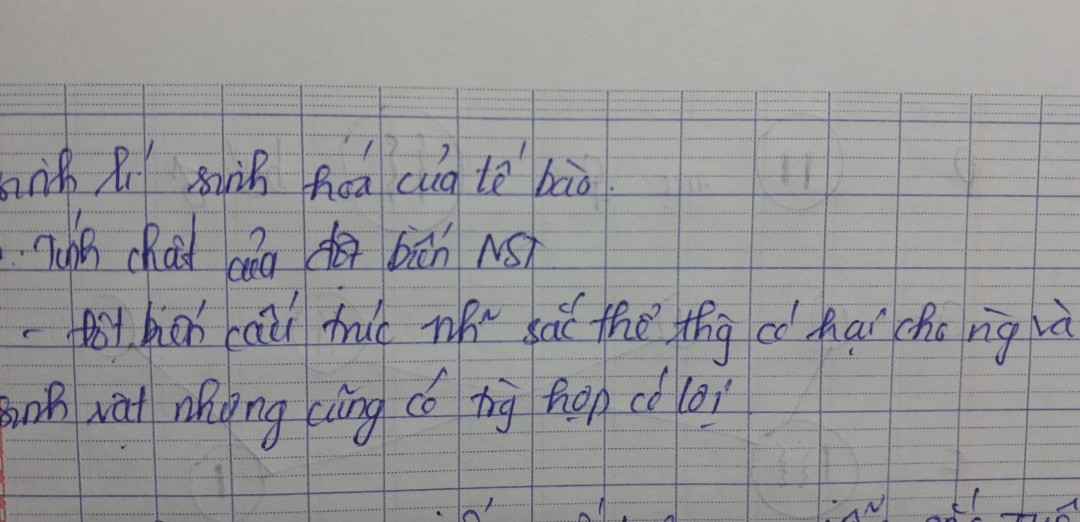 sinh lí sinh hoá của tế bào.
Tính chất của đột biến NST
- Đột biến cấu trúc nh~ sắc thể thg có hại cho ng và
sinh vật nhưng cũng có trg hợp có lợi